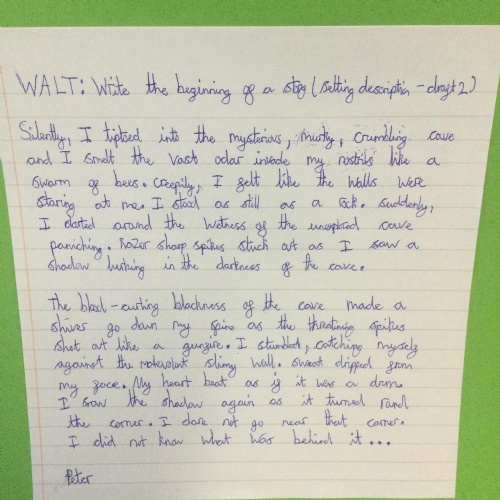 WALT: Write the beginning of a story (setting description - draft 2)
Silently, I tiptoed into the mysterious, murky, crumbling cave
and I smelt the vast odar invade my nostrils like a
swarm of bees. Creepily, I felt like the walls were
staring at me. I stood as still as a rock. Suddenly,
I darted around the wetness of the unexplored cave
panicking. Razor sharp spikes stuck out as I saw a
shadow lurking in the darkness of the cave.
The blood-curling blackness of the cave made a
shiver go down my spine as the threatining spikes
shot out like a gunfire. I stumbled, catching myself
against the malevolent slimy wall. Sweat dripped from
my face. My heart beat as if it was a drum.
I saw the shadow again as it turned rand
the corner. I dare not go near that corner.
I did not know what was behind it...
Peter